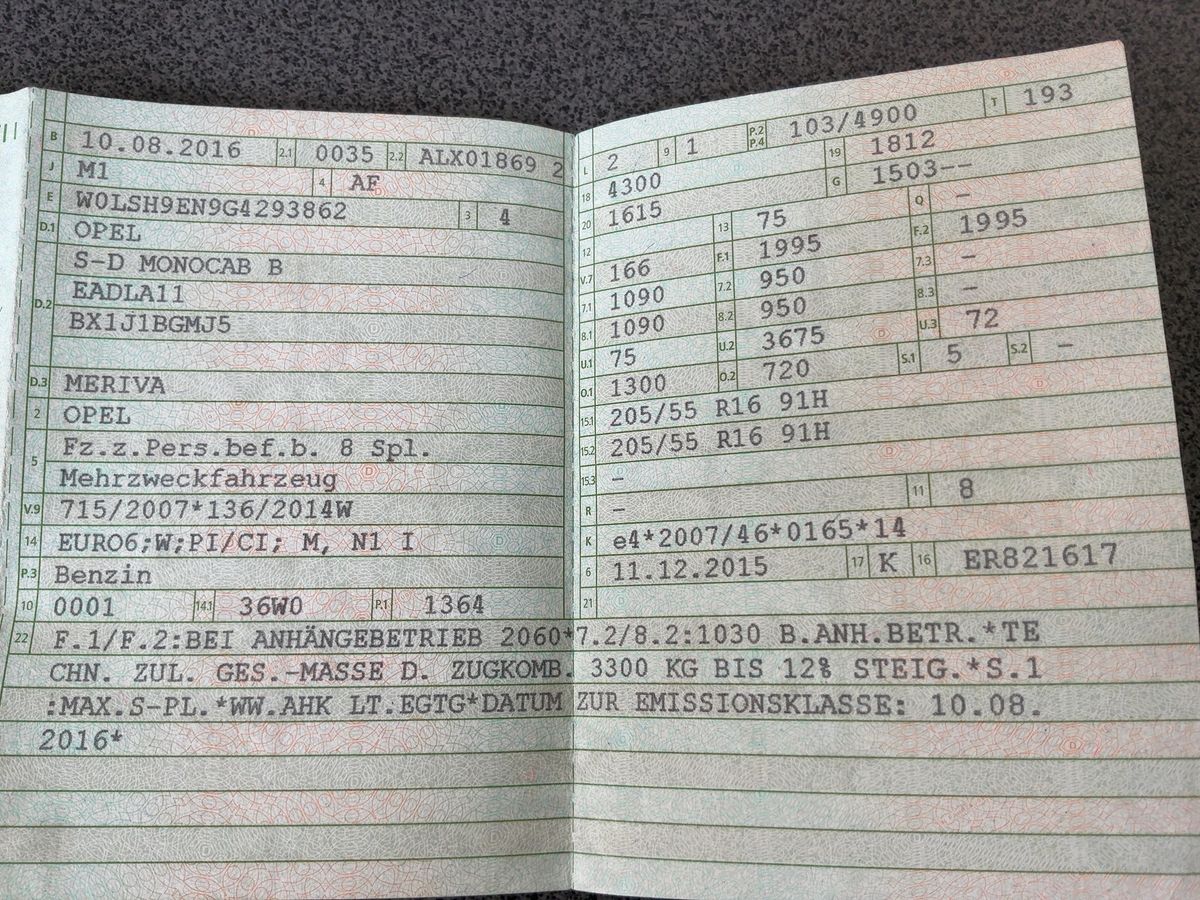 B 10.08.2016 2.1 0035 2.2 ALX01869 2
J M1 4 AF
E W0LSH9EN9G4293862 3 4
D.1 OPEL
D.2 S-D MONOCAB B
EADLA11
BX1J1BGMJ5
D.3 MERIVA
2 OPEL
5 Fz.z.Pers.bef.b. 8 Spl.
Mehrzweckfahrzeug
V.9 715/2007*136/2014W
14 EURO6;W;PI/CI; M, N1 I
P.3 Benzin
10 0001 14.1 36W0 P.1 1364
L 2 9 1 P.2 P.4 103/4900 T 193
18 4300 19 1812
20 1615 G 1503--
12 13 75 Q -
V.7 166 F.1 1995 F.2 1995
7.1 1090 7.2 950 7.3 -
8.1 1090 8.2 950 8.3 -
U.1 75 U.2 3675 U.3 72
O.1 1300 O.2 720 S.1 5 S.2 -
15.1 205/55 R16 91H
15.2 205/55 R16 91H
15.3 -
R - 11 8
K e4*2007/46*0165*14
6 11.12.2015 17 K 16 ER821617
21
22 F.1/F.2:BEI ANHÄNGEBETRIEB 2060*7.2/8.2:1030 B.ANH.BETR.*TE
CHN. ZUL. GES.-MASSE D. ZUGKOMB. 3300 KG BIS 12% STEIG.*S.1
:MAX.S-PL.*WW.AHK LT.EGTG*DATUM ZUR EMISSIONSKLASSE: 10.08.
2016*